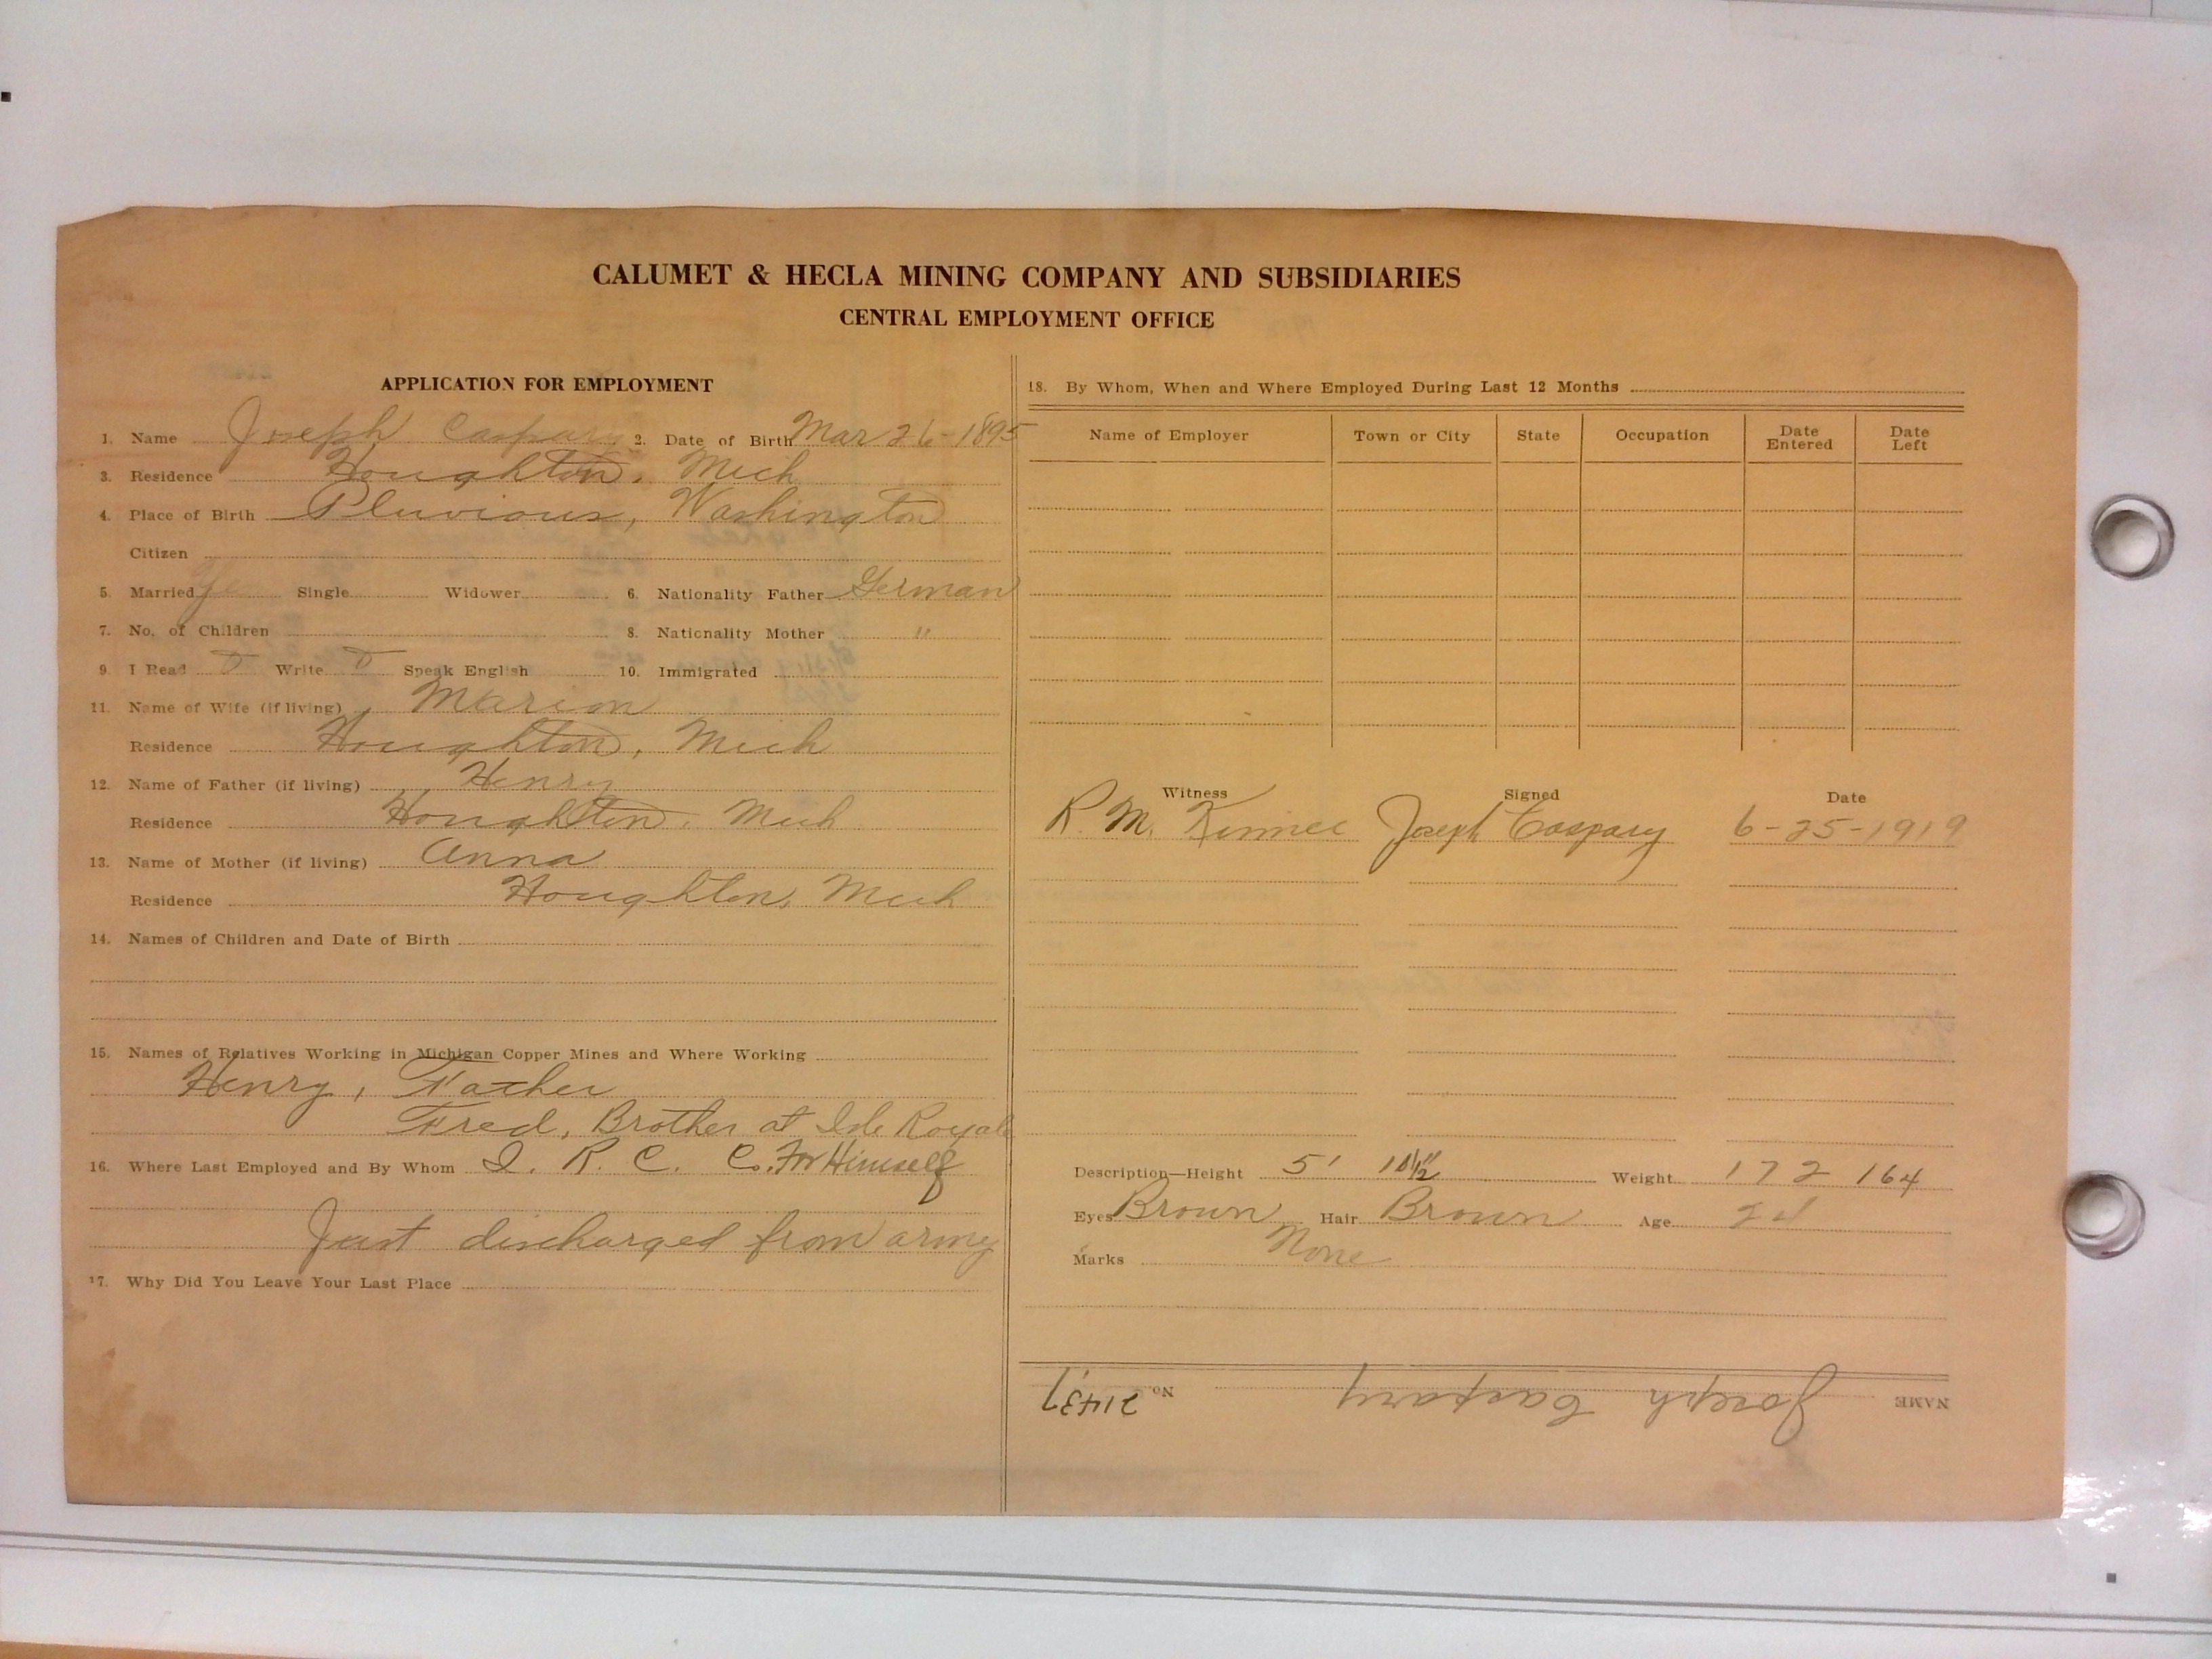 CALUMET & HECLA MINING COMPANY AND SUBSIDIARIES
CENTRAL EMPLOYMENT OFFICE
APPLICATION FOR EMPLOYMENT
1. Name Joseph Caspary 2. Date of Birth Mar 26-1895
3. Residence Houghton, Mich
4. Place of Birth Pluvious, Washington
Citizen
5. Married Single Widower 6. Nationality Father German
7. No. of Children 8. Nationality Mother "
9. I Read Write Speak English 10. Immigrated
11. Name of Wife (if living) Marion
Residence Houghton, Mich
12. Name of Father (if living) Henry
Residence Houghton, Mich
13. Name of Mother (if living) Anna
Residence Houghton, Mich
14. Names of Children and Date of Birth
15. Names of Relatives Working in Michigan Copper Mines and Where Working
Henry, Father
Fred, Brother at Isle Royale
16. Where Last Employed and By Whom I. R. C. C. For Himself
Just discharged from army
17. Why Did You Leave Your Last Place
18. By Whom, When and Where Employed During Last 12 Months
Name of Employer Town or City State Occupation Date Entered Date Left
Witness Signed Date
R. M. Joseph Caspary 6-25-1919
Description—Height 5' Weight 172 164
Eyes Brown Hair Brown Age 24
Marks None
NAME Joseph Caspary No. 21437